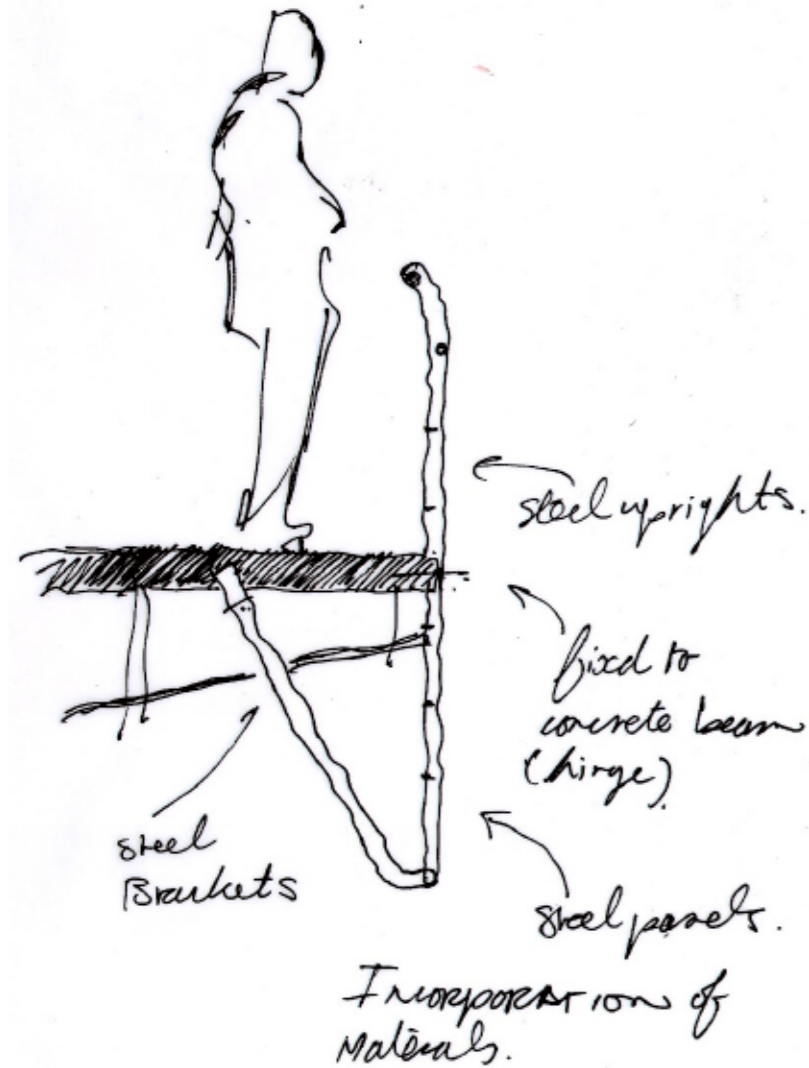 steel uprights.
fixed to
concrete beam
(hinge).
steel
Brackets
steel panels.
INCORPORATION of
Materials.